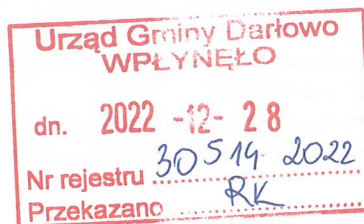 Urząd Gminy Darłowo
WPŁYNĘŁO
dn. 2022 -12- 28
Nr rejestru 30514. 2022
Przekazano RK